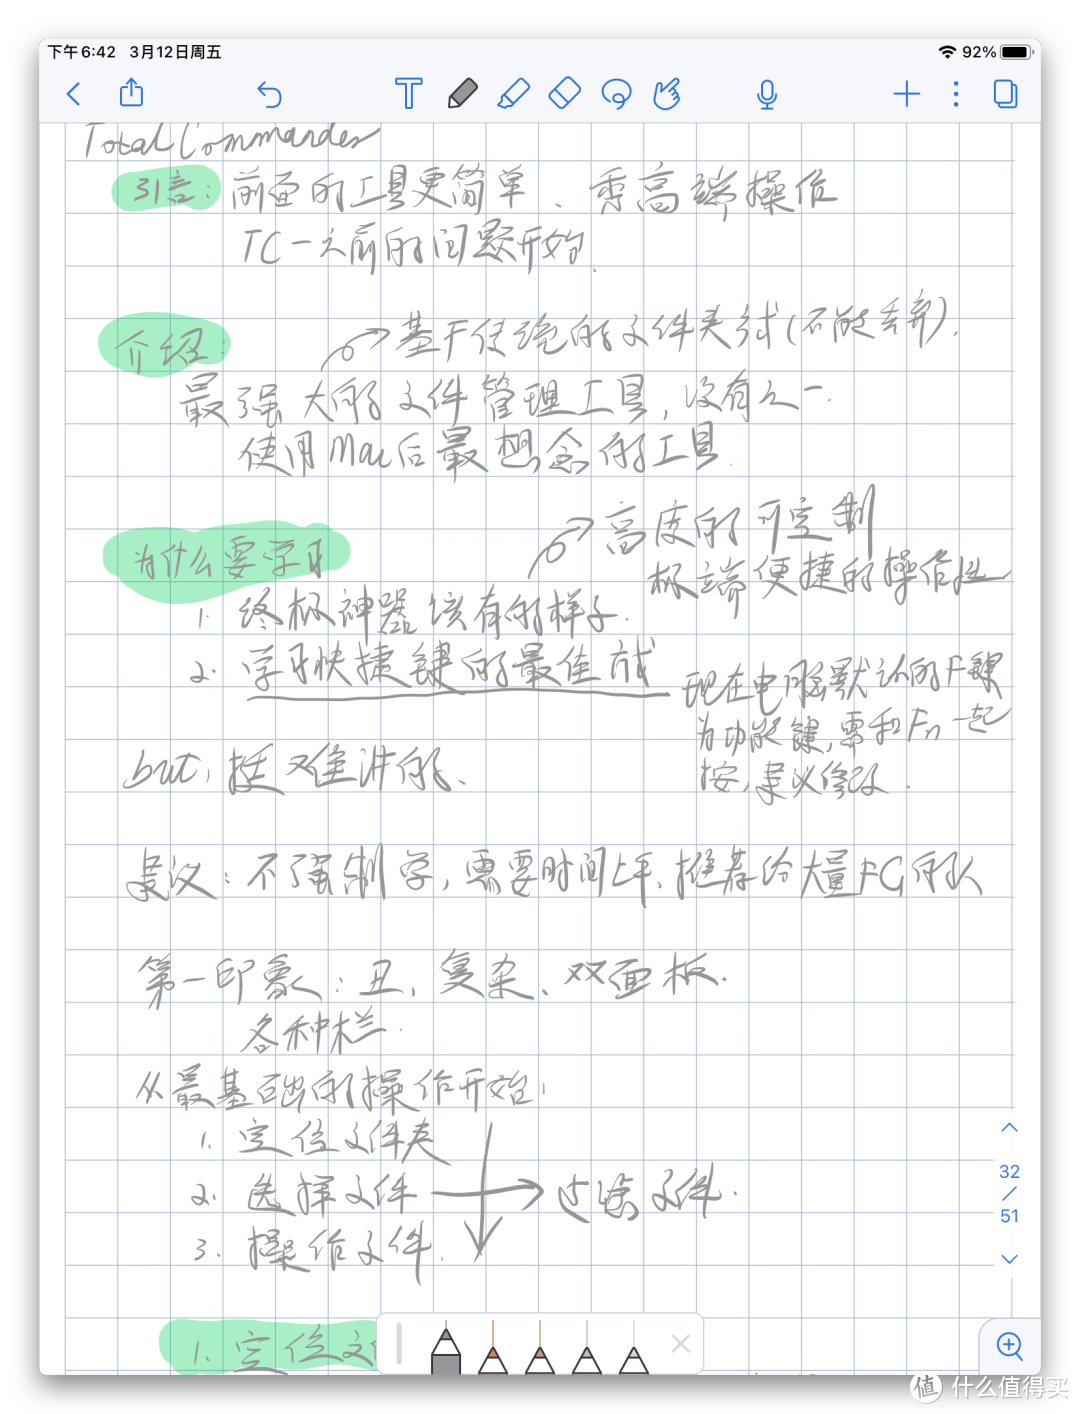 下午6:42 3月12日周五
92%
Total Commander
引言：前面的工具更简单、秉高端操作
TC一之前的问题开始.
介绍：
基于传统的文件夹式(不能丢弃).
最强大的文件管理工具，没有之一.
使用Mac后最想念的工具.
为什么要学习
高度的可定制
极端便捷的操作性
1. 终极神器该有的样子.
2. 学习快捷键的最佳
现在电脑默认的F键
为功能键，需和Fn一起
按，建议修改.
but，挺难讲的、
建议：不强制学，需要时间上手、推荐给大量FG
第一印象：丑、复杂、双面板.
各种栏.
从最基础的操作开始：
1. 定位文件夹
2. 选择文件 过滤文件.
3. 操作文件.
1. 定位文
32
/
51
值 什么值得买